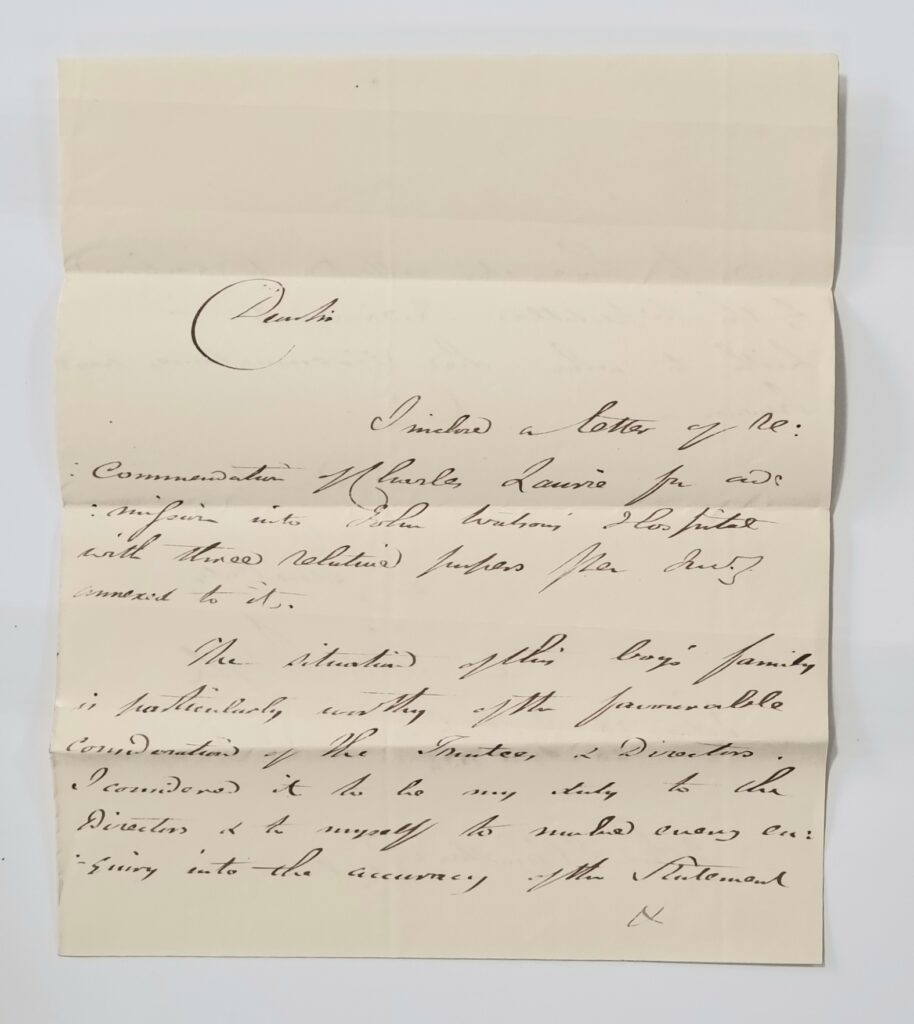 Dear Sir
I inclose a letter of re:
:commendation of Charles Laurie for ad:
:mission into John Watson's Hospital
with three relative papers
annexed to it.
The situation of this boy's family
is particularly worthy of the favourable
consideration of the Trustees & Directors.
I considered it to be my duty to the
Directors & to myself to make every en:
:quiry into the accuracy of the Statement